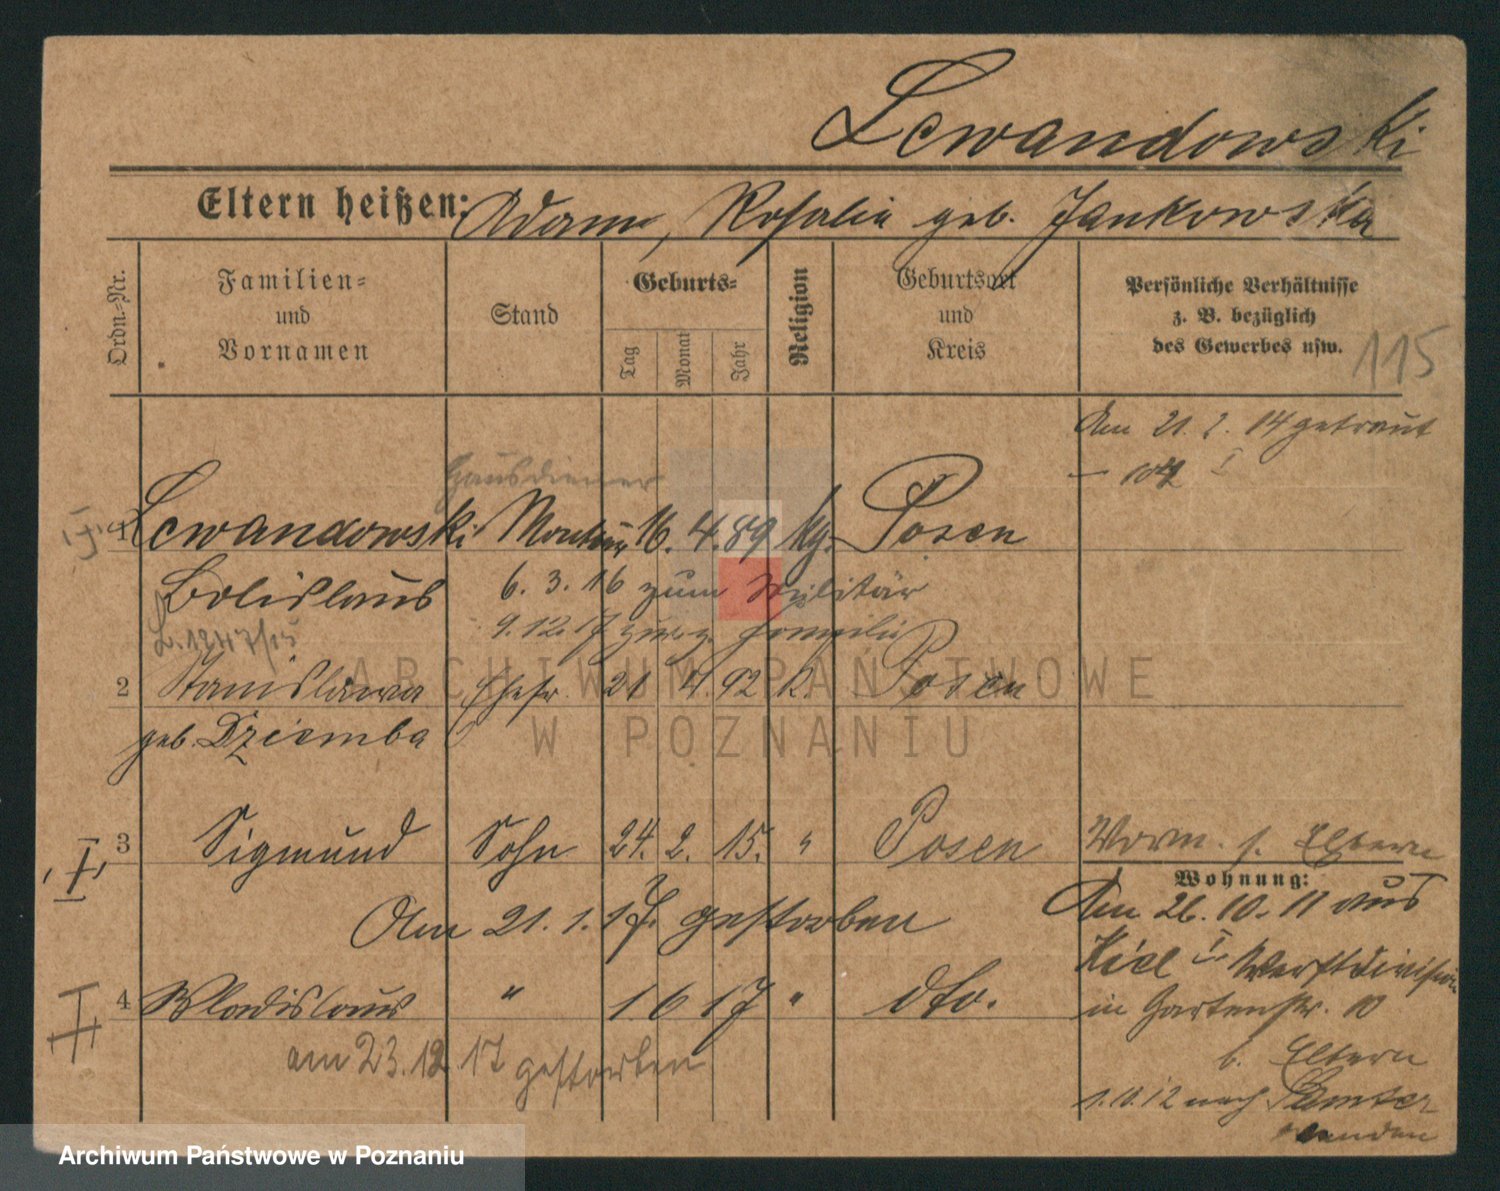 Lewandowski
Eltern heißen: Adam, Rosalie geb. Jankowska
Ordn.-Nr.
Familien= und Vornamen
Stand
Geburts=
Tag
Monat
Jahr
Religion
Geburtsort und Kreis
Persönliche Verhältnisse
z. B. bezüglich
des Gewerbes usw.
115
Am 21. 2. 14 getraut
Hausdiener
1 Lewandowski Monteur 16. 4. 89 kg. Posen
Bolislaus 6. 3. 16 zum Militär
9. 12. 17 zur Familie
2 Stanislawa Ehefr. 21 4. 92 k. Posen
geb. Dziemba
3 Sigmund Sohn 24. 2. 15. " Posen
Vorm. s. Eltern
Wohnung:
Am 21. 1. 17. gestorben
Am 26. 10. 11 aus
Kiel I Werftdivision
in Gartenstr. 10
b. Eltern
1. 10. 12 nach Samter
4 Wladislaus " 1 6 17 " dto.
am 23. 12. 17 gestorben
ARCHIWUM PAŃSTWOWE
W POZNANIU
Archiwum Państwowe w Poznaniu